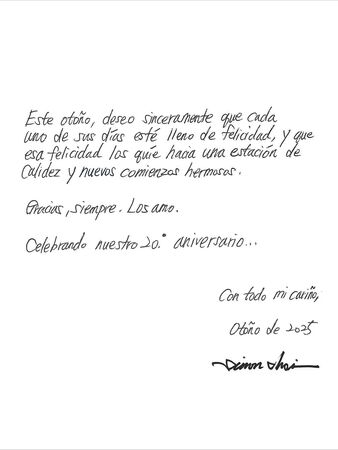 Este otoño, deseo sinceramente que cada
uno de sus días esté lleno de felicidad, y que
esa felicidad los guíe hacia una estación de
Calidez y nuevos comienzos hermosos.
Gracias, siempre. Los amo.
Celebrando nuestro 20.° aniversario...
Con todo mi cariño,
Otoño de 2025